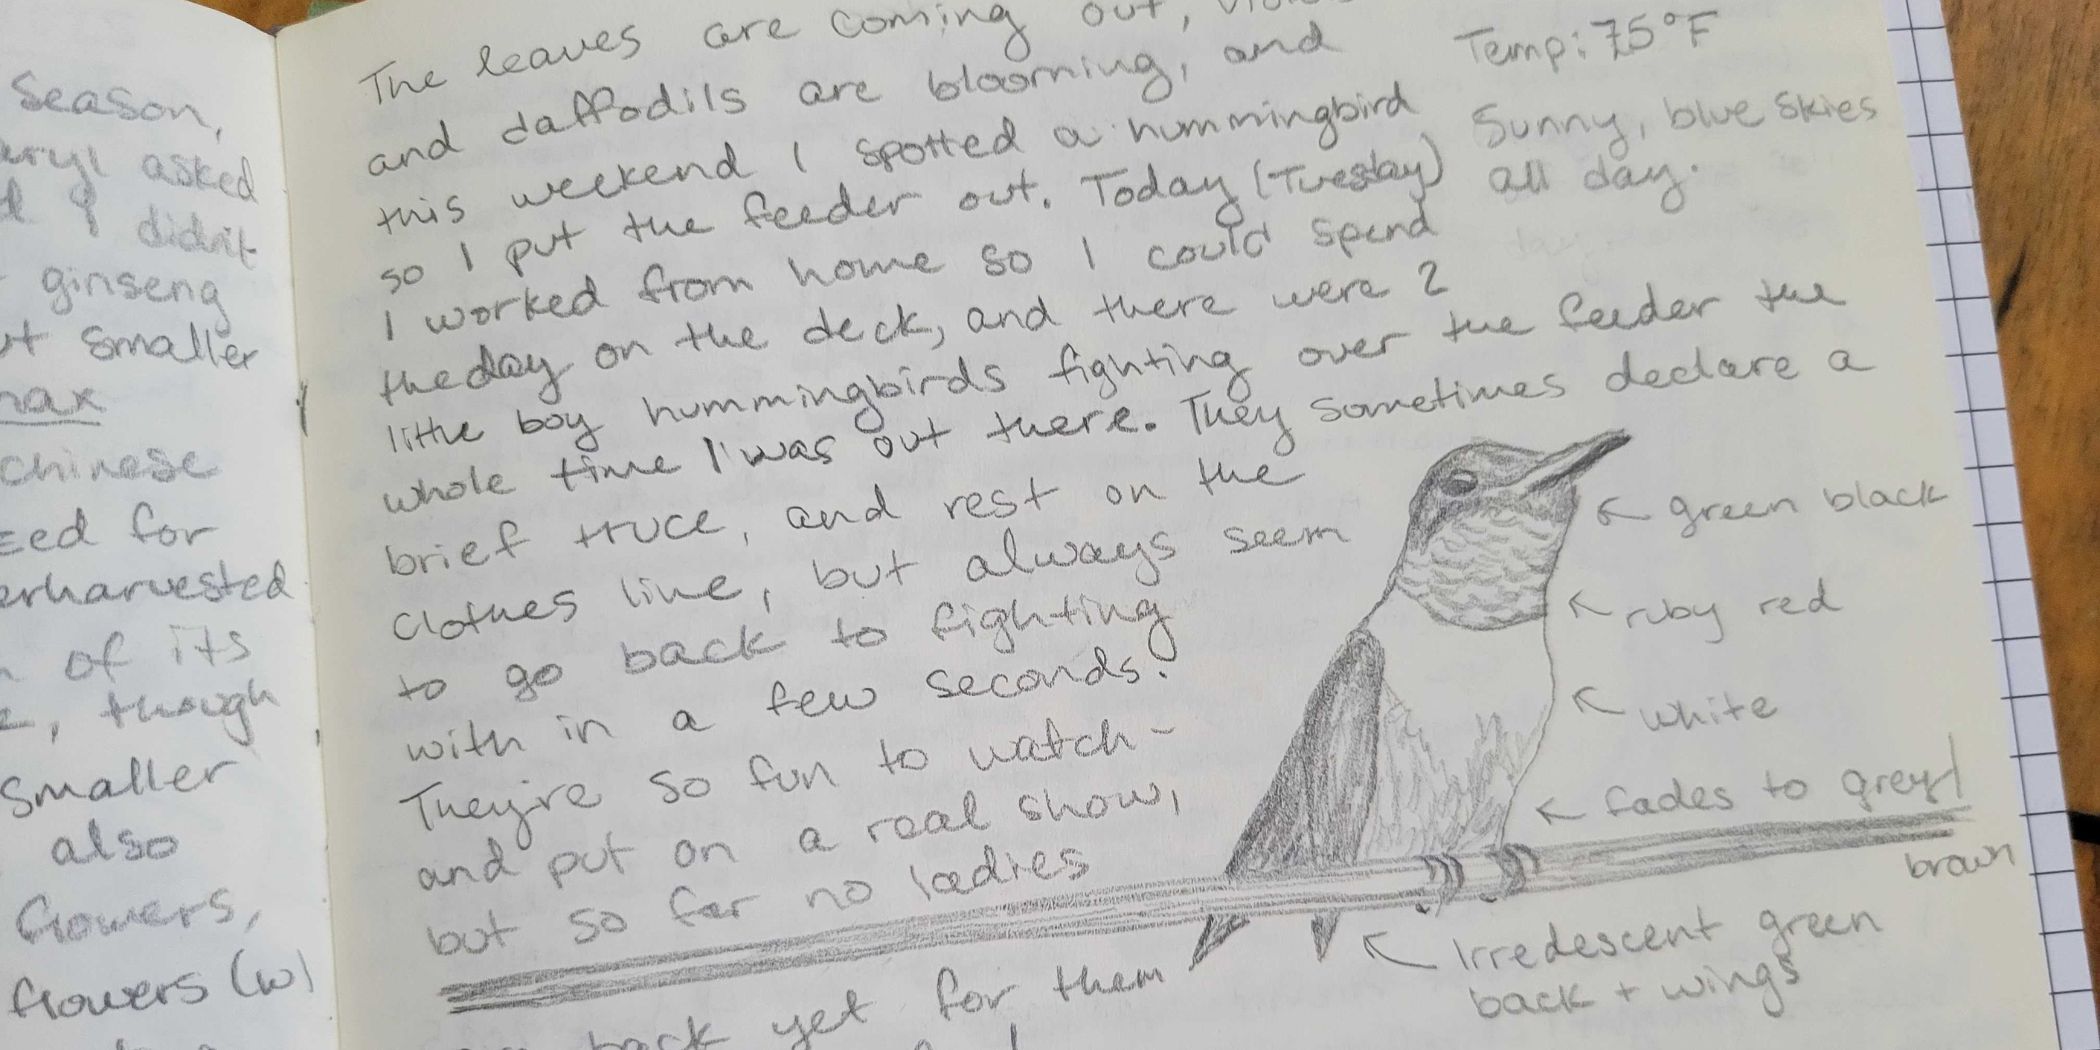 Season,
asked
I didn't
ginseng
smaller
Chinese
for
of its
though
smaller
also
flowers,
flowers (w)
The leaves are coming out,
and daffodils are blooming, and
this weekend I spotted a hummingbird
so I put the feeder out. Today (Tuesday)
I worked from home so I could spend
the day on the deck, and there were 2
little boy hummingbirds fighting over the feeder the
whole time I was out there. They sometimes declare a
brief truce, and rest on the
clothes line, but always seem
to go back to fighting
with in a few seconds.
They're so fun to watch -
and put on a real show,
but so far no ladies
back yet for them
Temp: 75°F
Sunny, blue skies
all day.
green black
ruby red
white
fades to grey
brown
Irredescent green
back + wings